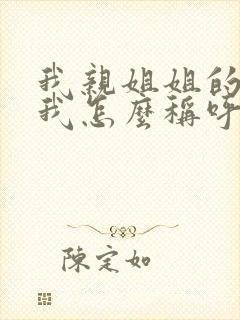 我親姐姐的
我怎麼稱呼
陳定如